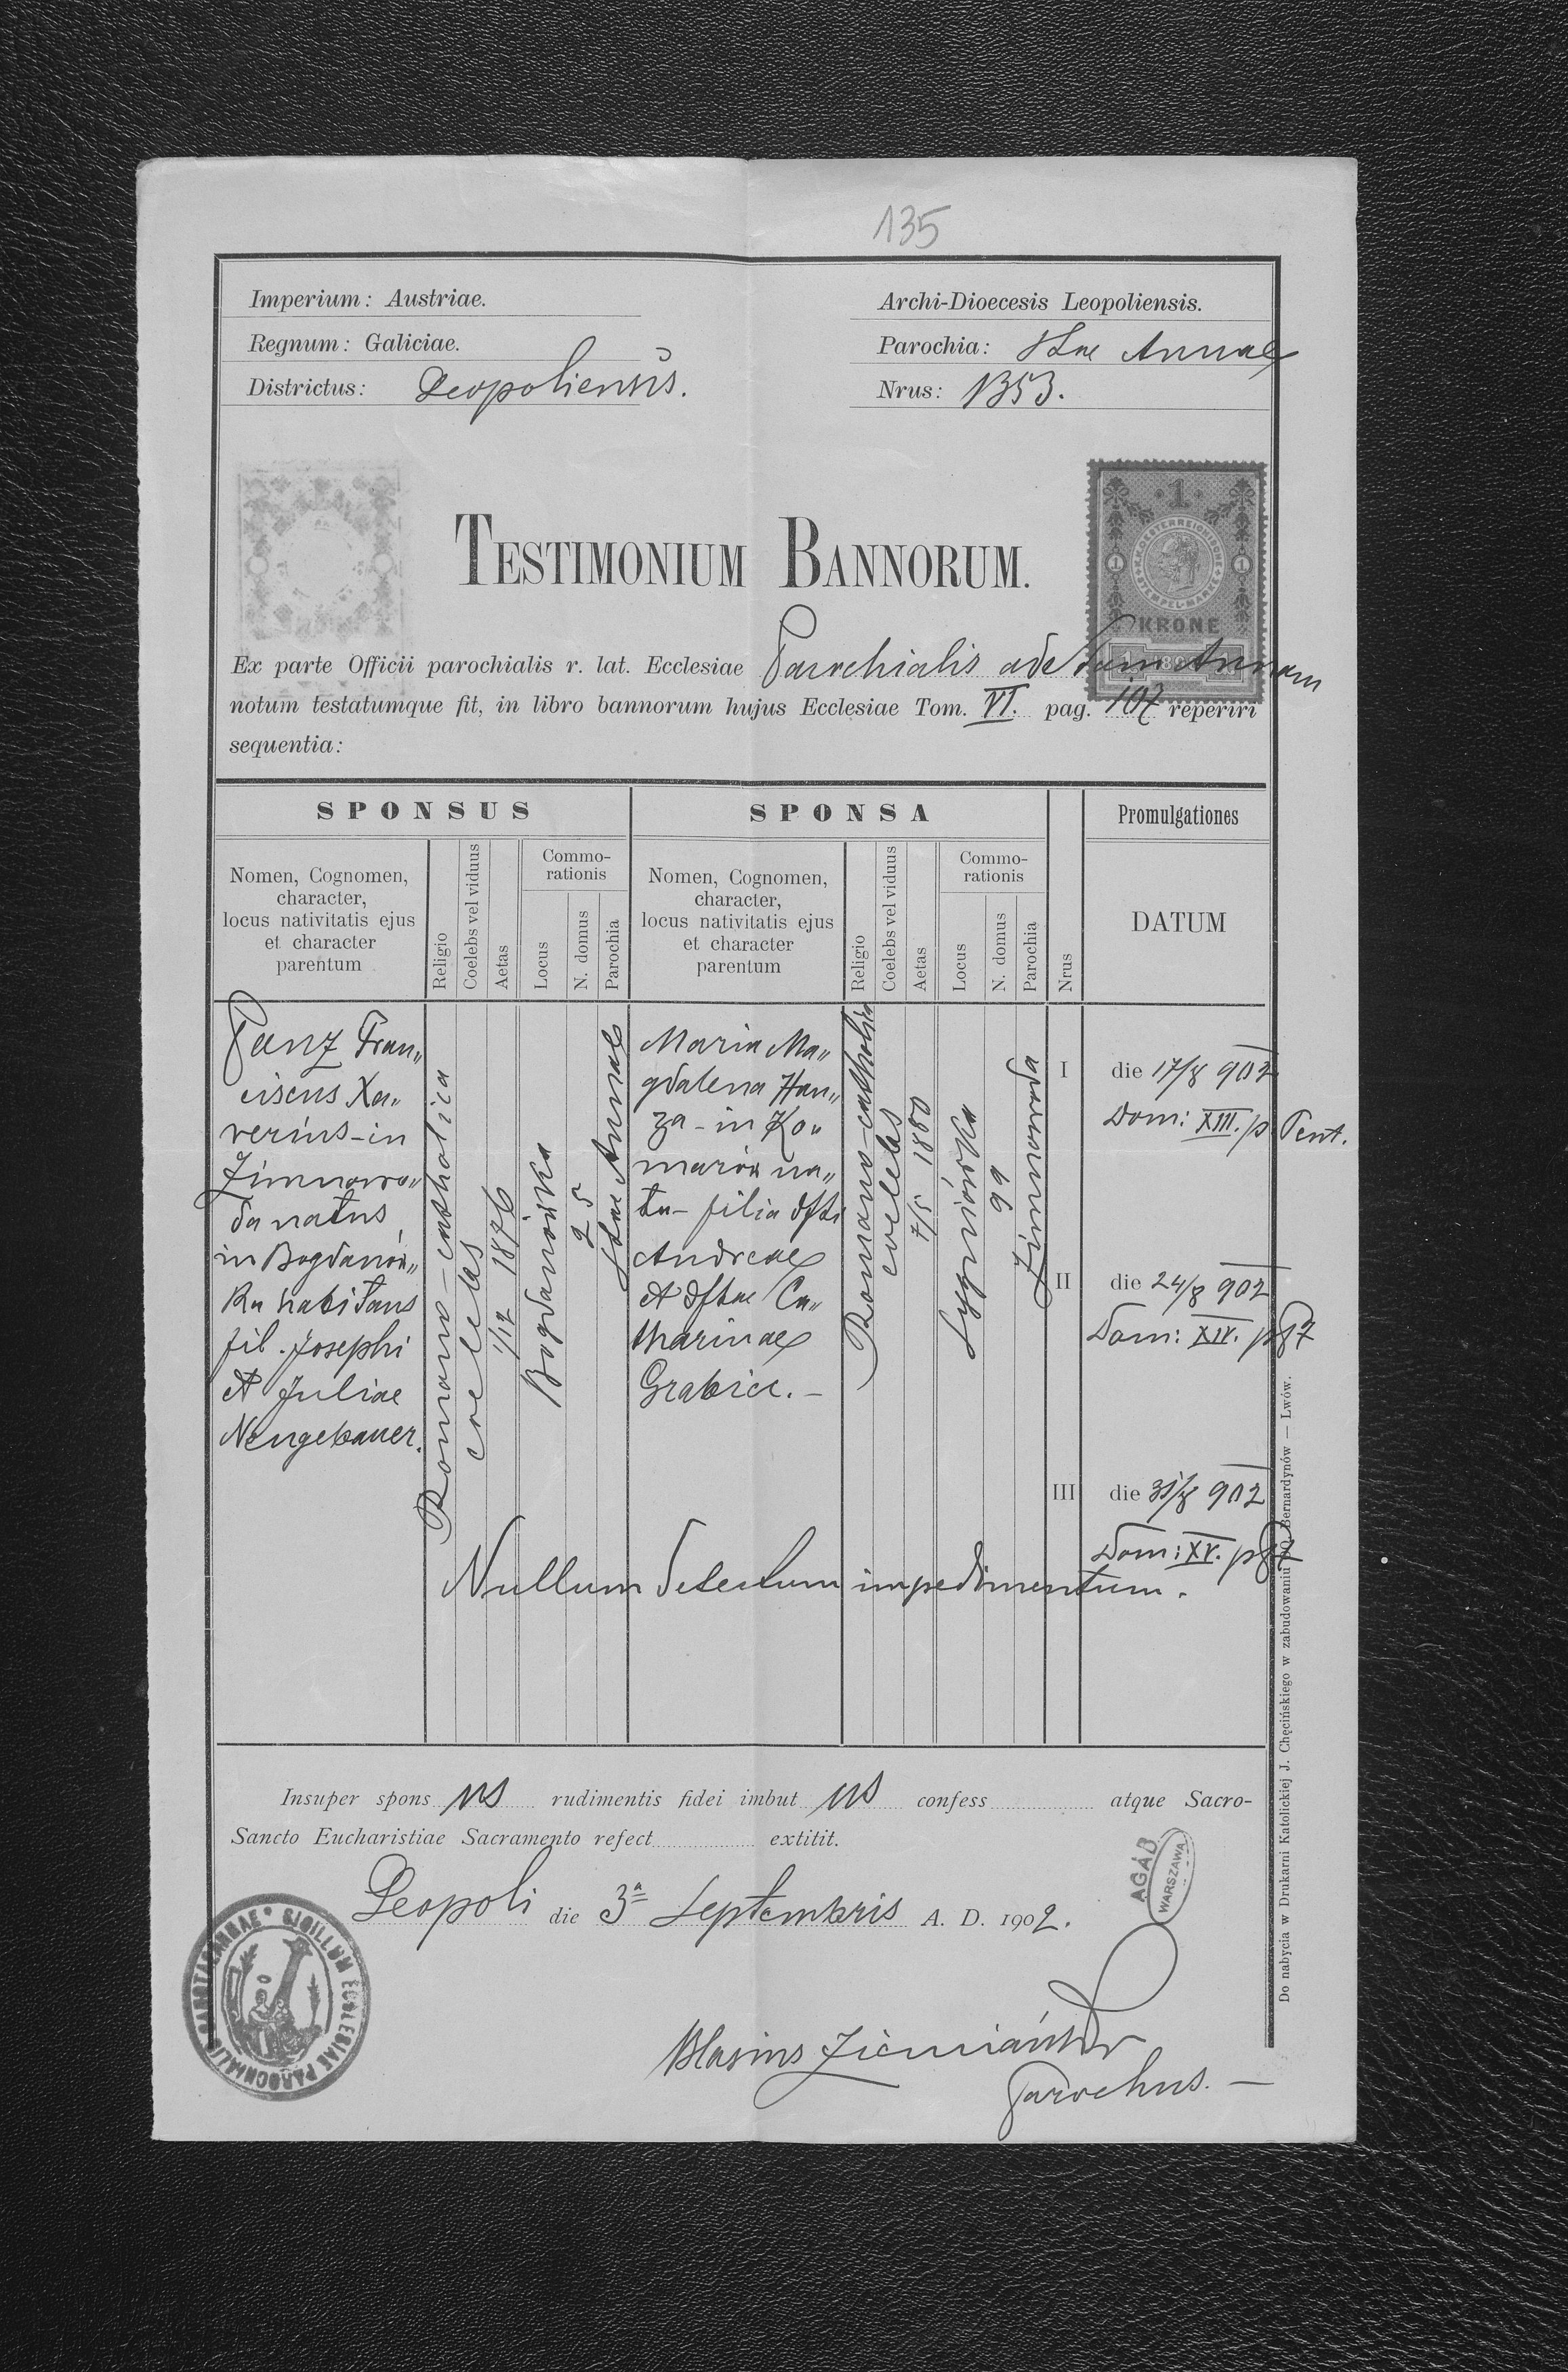 135
Imperium: Austriae.
Archi-Dioecesis Leopoliensis.
Regnum: Galiciae.
Parochia: Stae Annae
Districtus: Leopoliensis.
Nrus: 1353.
1
K.K. OESTERREICHISCHE STEMPEL-MARKE
1 1
KRONE
TESTIMONIUM BANNORUM.
Ex parte Officii parochialis r. lat. Ecclesiae Parochialis ad Stam Annam
notum testatumque fit, in libro bannorum hujus Ecclesiae Tom. VI. pag. 107 reperiri
sequentia:
SPONSUS
SPONSA
Promulgationes
Nomen, Cognomen,
character,
locus nativitatis ejus
et character
parentum
Religio
Coelebs vel viduus
Aetas
Commo-
rationis
Locus
N. domus
Parochia
Nomen, Cognomen,
character,
locus nativitatis ejus
et character
parentum
Religio
Coelebs vel viduus
Aetas
Commo-
rationis
Locus
N. domus
Parochia
Nrus
DATUM
Panz Fran„
ciscus Xa„
verius-in
Zimnowo„
da natus
in Bogdanów„
ka habitans
fil. Josephi
et Juliae
Neugebauer.
Romano-catholica
coelebs
1/12 1876
Bogdanówka
25
Stae Annae
Maria Ma„
gdalena Han„
za - in Ko„
marów na„
ta - filia dfti
Andreae
et dftae Ca„
tharinae
Grabicz. -
Romano-catholica
coelebs
7/5 1880
Sygniówka
99
Zimnowoda
I die 17/8 902
Dom: XIII. p. Pent.
II die 24/8 902
Dom: XIV.
III die 31/8 902
Dom: XV.
Nullum detectum impedimentum.
Insuper spons us rudimentis fidei imbut us confess atque Sacro-
Sancto Eucharistiae Sacramento refect extitit.
Leopoli die 3a Septembris A. D. 1902.
AGAD
WARSZAWA
SIGILLUM ECCLESIAE PAROCHIALIS
Blasius
Parochus. -
Do nabycia w Drukarni Katolickiej J. Chęcińskiego w zabudowaniu OO. Bernardynów — Lwów.